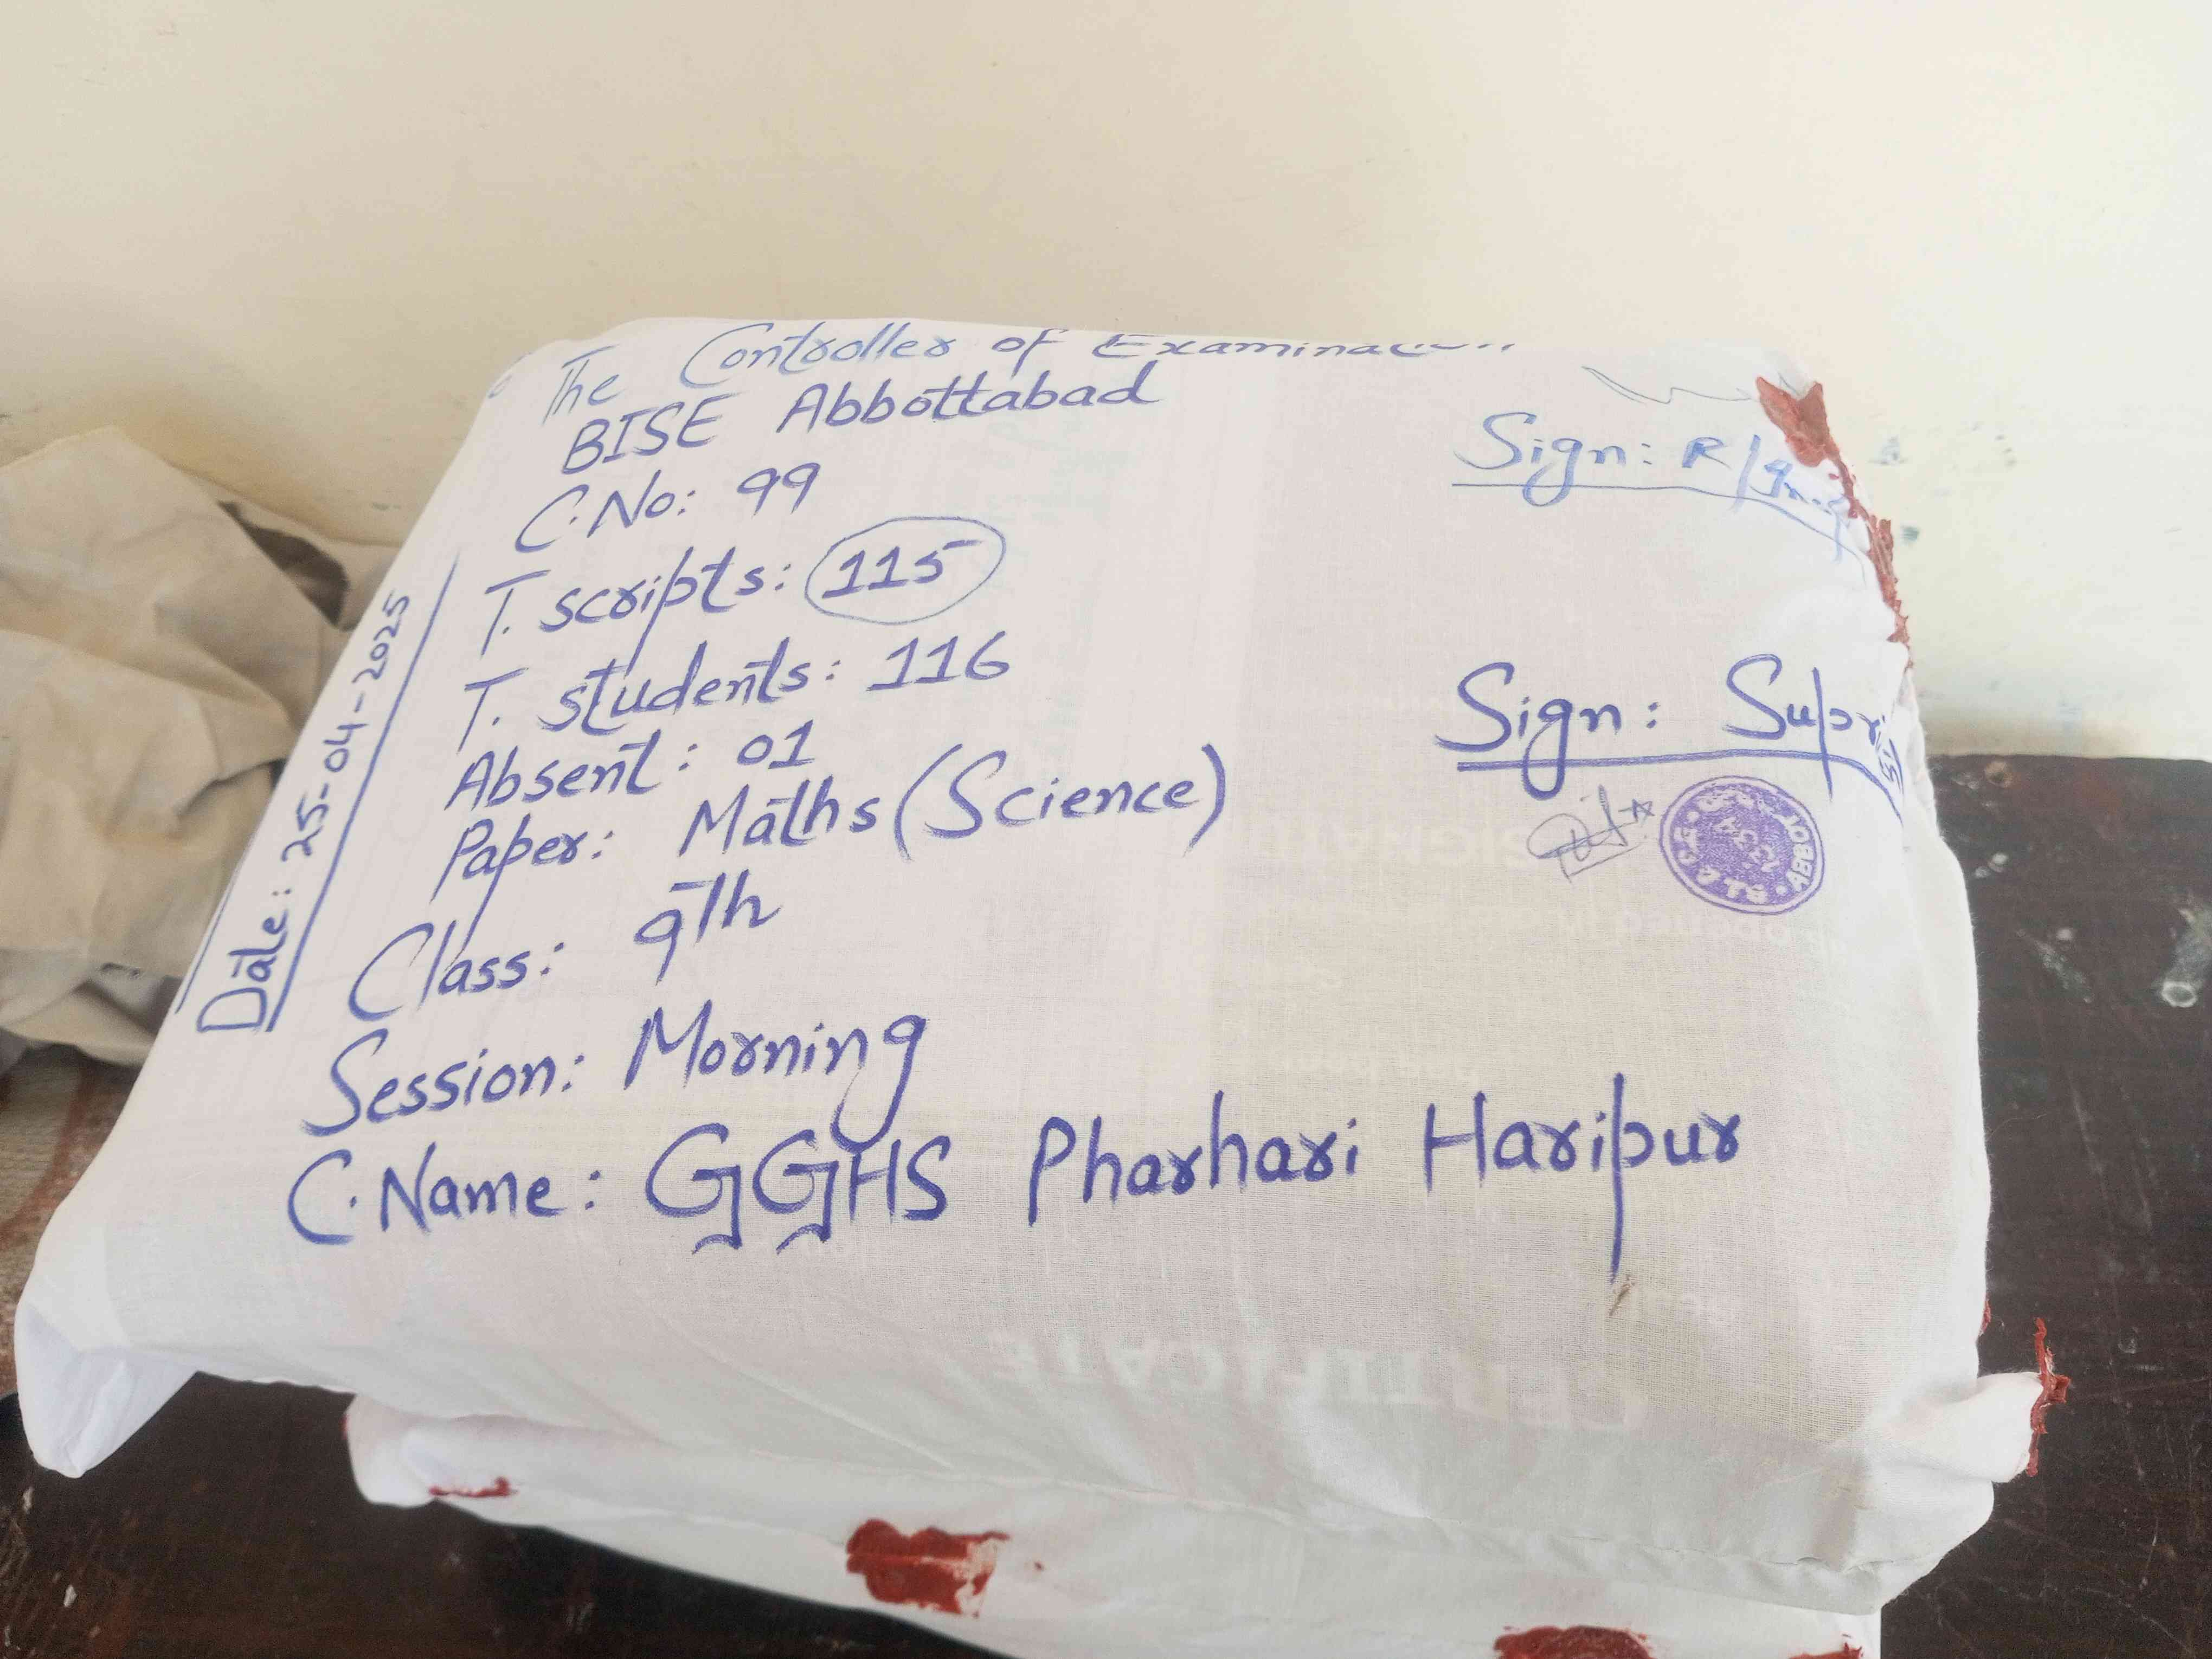 The Controller of
BISE Abbottabad
C.No: 99
T. scripts: 115
T. students: 116
Absent: 01
Paper: Maths (Science)
Class: 9th
Session: Morning
C.Name: GGHS Pharhari Haripur
Date: 25-04-2025
Sign: R/
Sign: